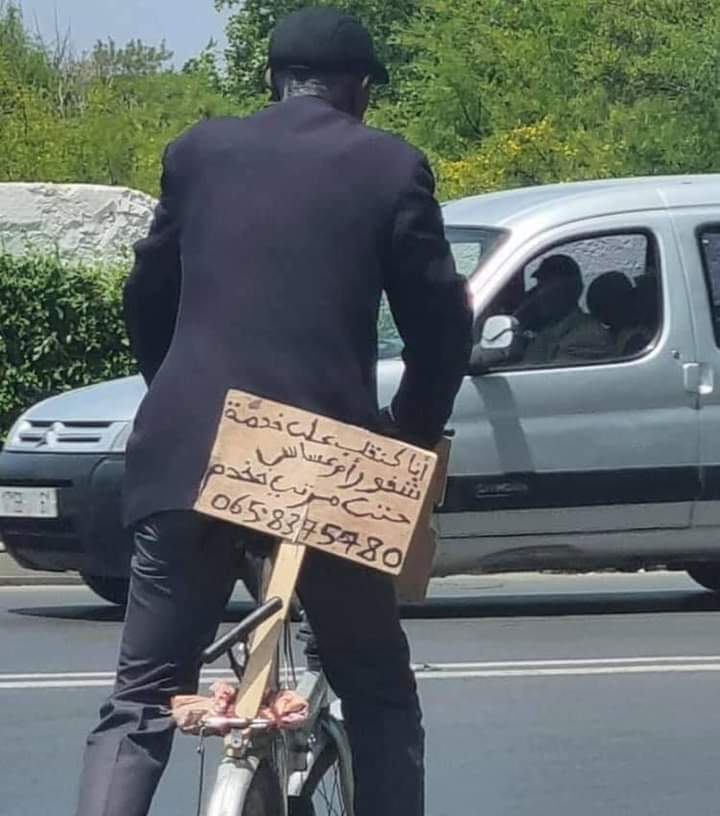 أنا كنقلب على خدمة
شفور أم عساس
حتى مرتي تخدم
0658375480